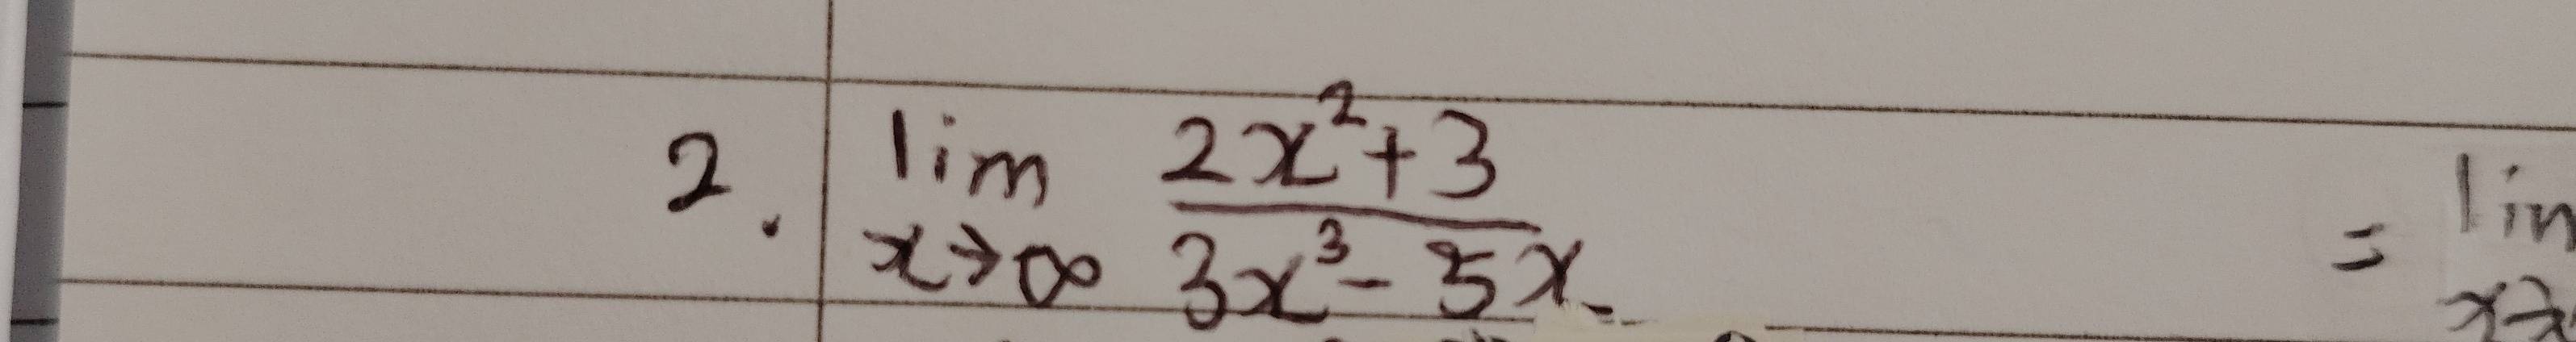 2. lim x→∞ (2x²+3)/(3x³-5x) = lim x→